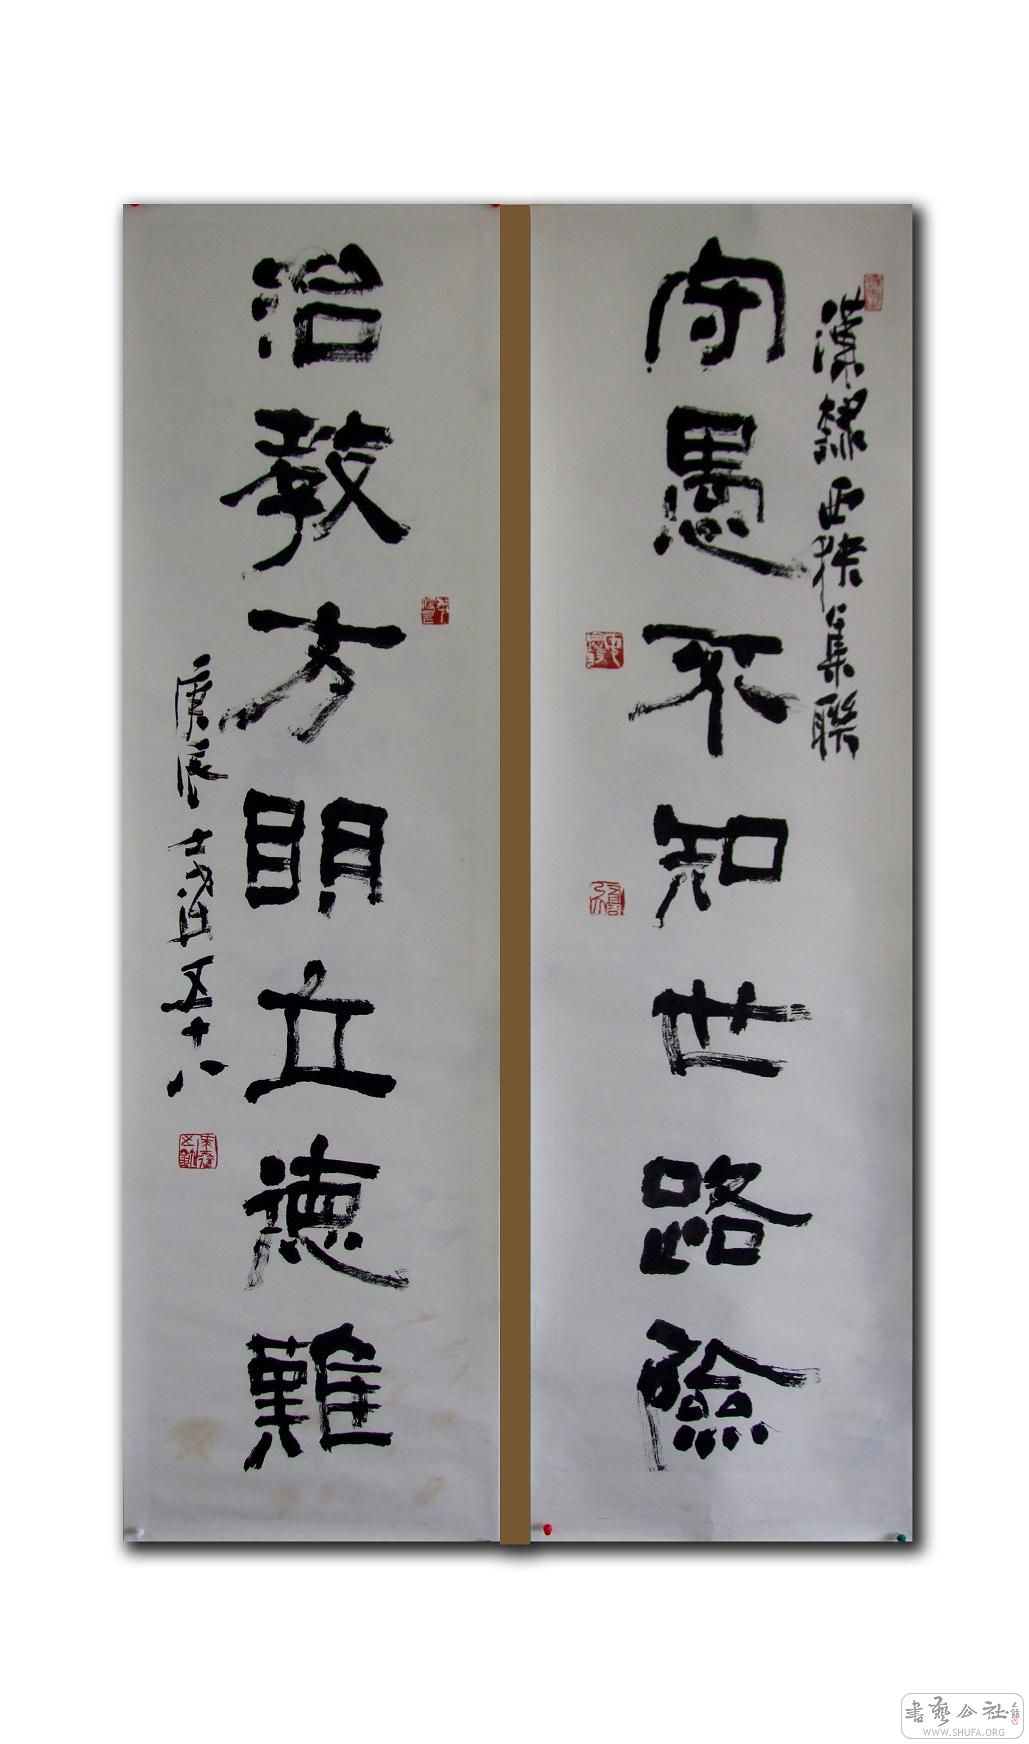 漢隸西狹集聯
守愚不知世路險
治教方明立德難
庚辰
五十八
書藝公社
WWW.SHUFA.ORG